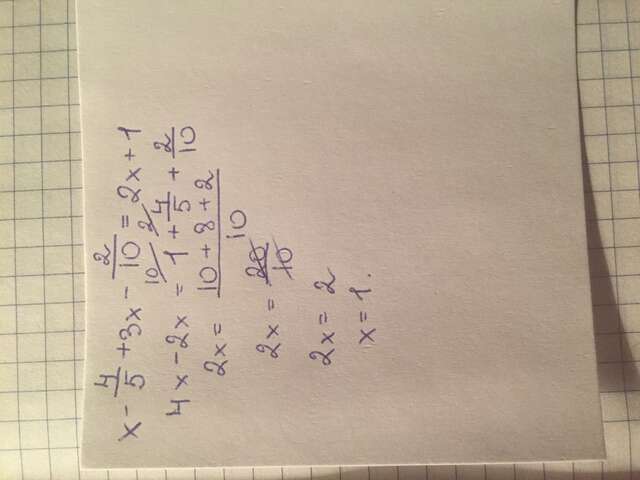 x - 4/5 + 3x - 2/10 = 2x + 1
10/ 2/
4x - 2x = 1 + 4/5 + 2/10
2x = (10 + 8 + 2)/10
2x = 20/10
2x = 2
x = 1.